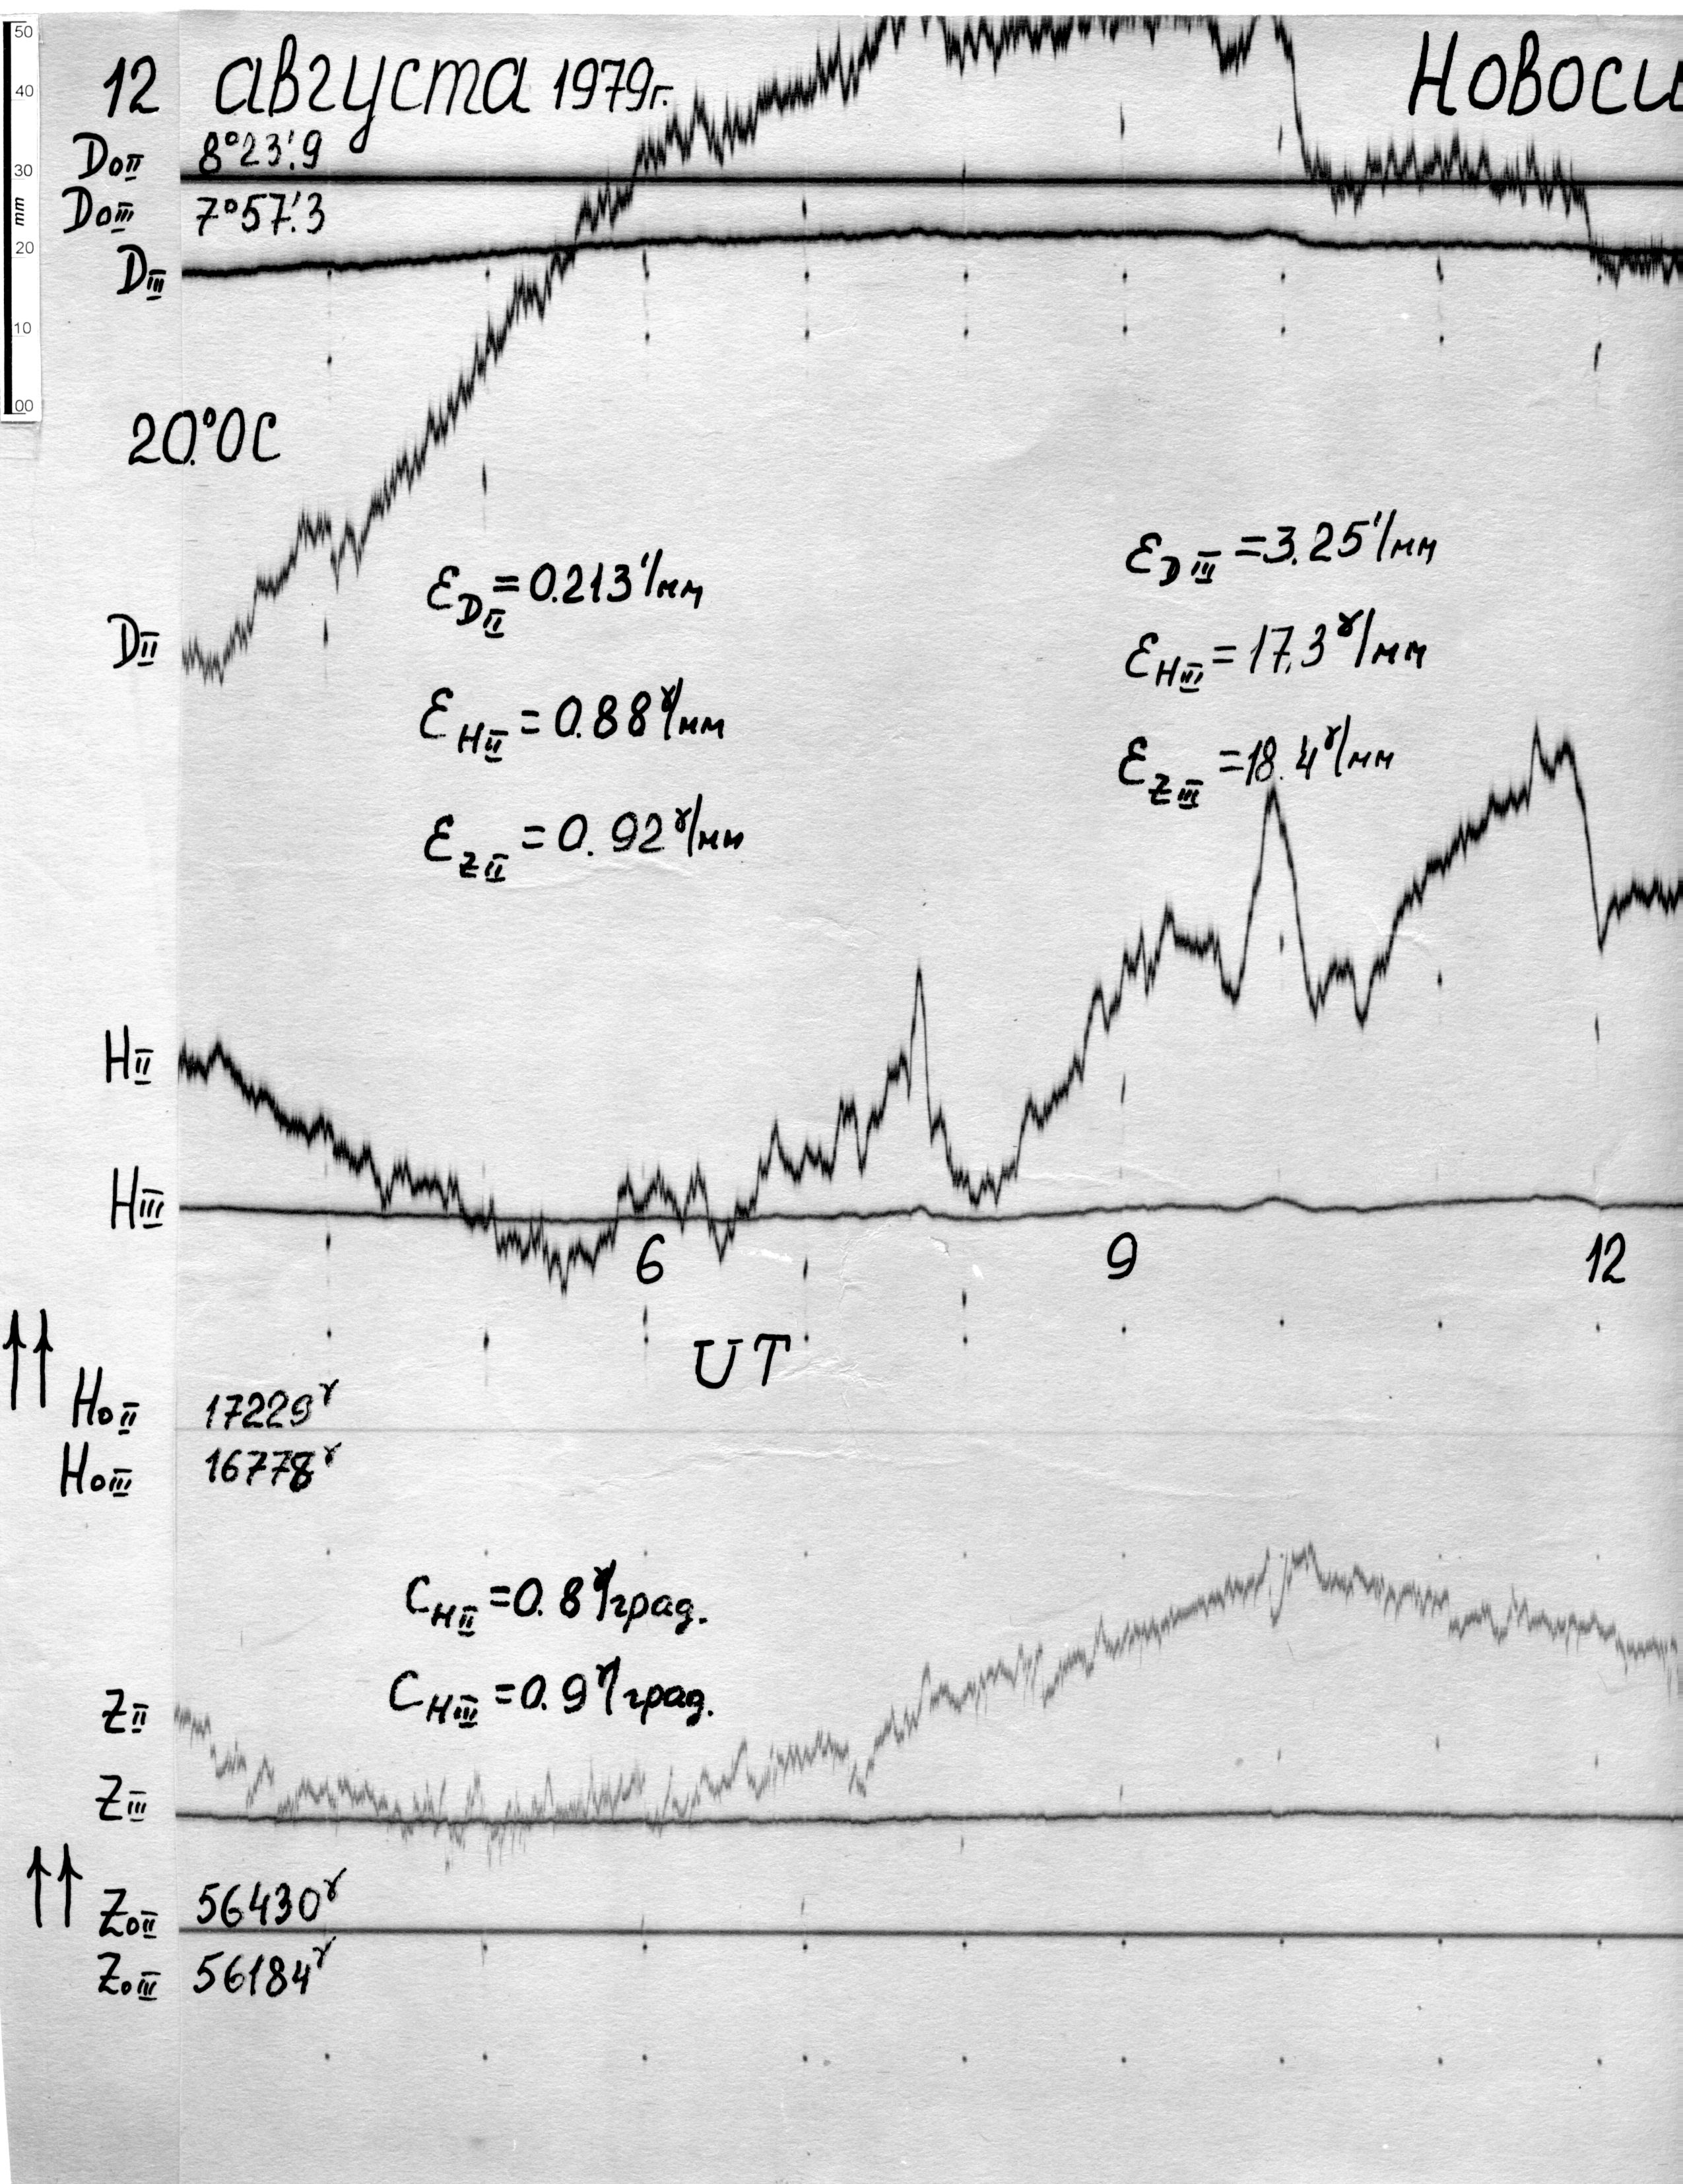 50
40
30
mm
20
10
00
12 августа 1979г.
Новоси
DoII 8°23'.9
DoIII 7°57'.3
DIII
20.°0C
DII
εDII = 0.213'/мм
εDIII = 3.25'/мм
εHII = 0.88γ/мм
εHIII = 17.3γ/мм
εZII = 0.92γ/мм
εZIII = 18.4γ/мм
HII
HIII
6 9 12
UT
HoII 17229γ
HoIII 16778γ
CHII = 0.8γ/град.
CHIII = 0.9γ/град.
ZII
ZIII
ZoII 56430γ
ZoIII 56184γ